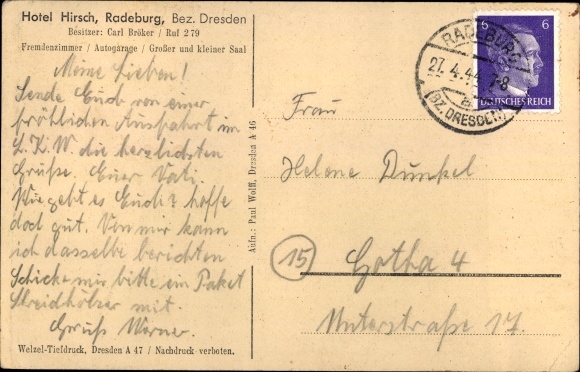 Hotel Hirsch, Radeburg, Bez. Dresden
Besitzer: Carl Bröker / Ruf 279
Fremdenzimmer / Autogarage / Großer und kleiner Saal
Meine Lieben!
Sende Euch von einer
fröhlichen Ausfahrt im
L.K.W. die herzlichsten
Grüße. Euer Vati.
Wie geht es Euch? hoffe
doch gut. Von mir kann
ich dasselbe berichten
Schicke mir bitte ein Paket
Streichhölzer mit.
Gruß Werner.
Welzel-Tiefdruck, Dresden A 47 / Nachdruck verboten.
Aufn.: Paul Wolff, Dresden A 46
RADEBURG
27.4.44.7-8
(BZ. DRESDEN)
6 6
DEUTSCHES REICH
Frau
Helene Dunkel
15
Gotha 4
Unterstraße 17.